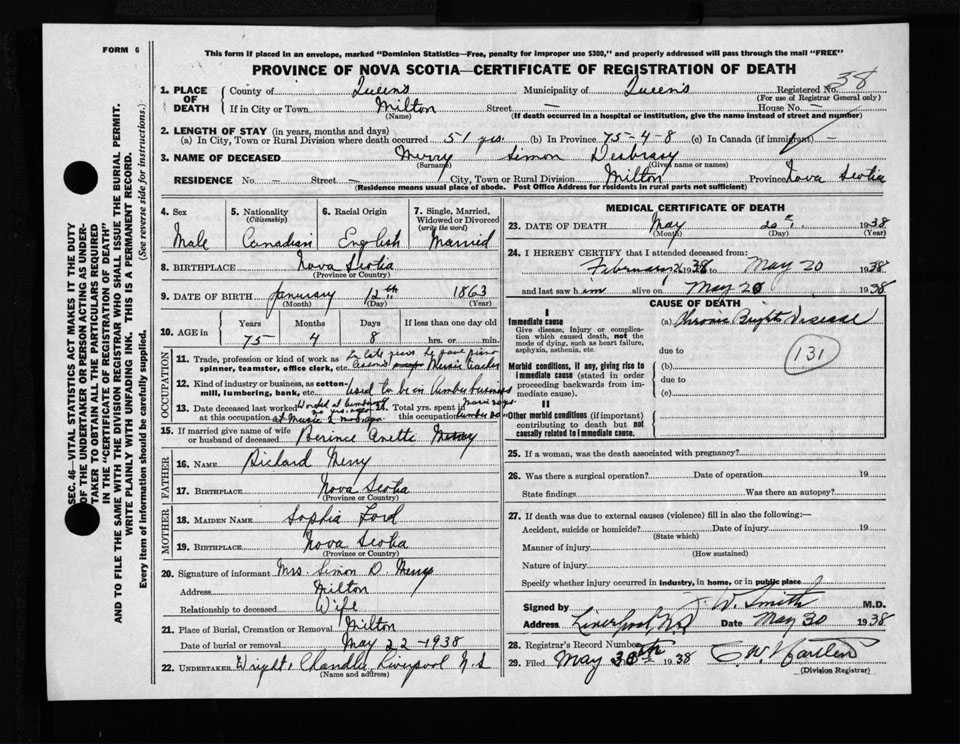 FORM 6
This form if placed in an envelope, marked "Dominion Statistics—Free, penalty for improper use $300," and properly addressed will pass through the mail "FREE"
PROVINCE OF NOVA SCOTIA—CERTIFICATE OF REGISTRATION OF DEATH
38
1. PLACE OF DEATH County of Queens Municipality of Queens Registered No.
(For use of Registrar General only)
If in City or Town Milton Street — House No. —
(Name) (If death occurred in a hospital or institution, give the name instead of street and number)
2. LENGTH OF STAY (in years, months and days)
(a) In City, Town or Rural Division where death occurred 51 yrs. (b) In Province 75-4-8 (c) In Canada (if immigrant) —
3. NAME OF DECEASED Merry Simon Desbrasy
(Surname) (Given name or names)
RESIDENCE No. — Street — City, Town or Rural Division Milton Province Nova Scotia
(Residence means usual place of abode. Post Office Address for residents in rural parts not sufficient)
SEC. 46—VITAL STATISTICS ACT MAKES IT THE DUTY
OF THE UNDERTAKER OR PERSON ACTING AS UNDER-
TAKER TO OBTAIN ALL THE PARTICULARS REQUIRED
IN THE "CERTIFICATE OF REGISTRATION OF DEATH"
AND TO FILE THE SAME WITH THE DIVISION REGISTRAR WHO SHALL ISSUE THE BURIAL PERMIT.
WRITE PLAINLY WITH UNFADING INK. THIS IS A PERMANENT RECORD.
Every item of information should be carefully supplied. (See reverse side for instructions.)
4. Sex 5. Nationality (Citizenship) 6. Racial Origin 7. Single, Married, Widowed or Divorced (write the word)
Male Canadian English Married
8. BIRTHPLACE Nova Scotia
(Province or Country)
9. DATE OF BIRTH January 12th 1863
(Month) (Day) (Year)
10. AGE in Years Months Days If less than one day old
75 4 8 hrs. or min.
OCCUPATION
11. Trade, profession or kind of work as spinner, teamster, office clerk, etc. In late years he gave piano lessons Music teacher
12. Kind of industry or business, as cotton-mill, lumbering, bank, etc. Used to be in lumber business
13. Date deceased last worked at this occupation 14. Total yrs. spent in this occupation
15. If married give name of wife or husband of deceased Berince Anette Merry
FATHER
16. NAME Richard Merry
17. BIRTHPLACE Nova Scotia
(Province or Country)
MOTHER
18. MAIDEN NAME Sophia Ford
19. BIRTHPLACE Nova Scotia
(Province or Country)
20. Signature of informant Mrs. Simon D. Merry
Address Milton
Relationship to deceased Wife
21. Place of Burial, Cremation or Removal Milton
Date of burial or removal May 22-1938
22. UNDERTAKER Wright, Chandler Liverpool N.S
(Name and address)
MEDICAL CERTIFICATE OF DEATH
23. DATE OF DEATH May 20th 1938
(Month) (Day) (Year)
24. I HEREBY CERTIFY that I attended deceased from:
February 1938 to May 20 1938
and last saw him alive on May 20 1938
CAUSE OF DEATH
I
Immediate cause (a) Chronic Brights Disease
Give disease, injury or complica-
tion which caused death, not the
mode of dying, such as heart failure,
asphyxia, asthenia, etc. due to
131
Morbid conditions, if any, giving rise to (b)
immediate cause (stated in order due to
proceeding backwards from im-
mediate cause). (c)
II
Other morbid conditions (if important)
contributing to death but not
causally related to immediate cause.
25. If a woman, was the death associated with pregnancy?
26. Was there a surgical operation? Date of operation 19
State findings Was there an autopsy?
27. If death was due to external causes (violence) fill in also the following:—
Accident, suicide or homicide? Date of injury 19
(State which)
Manner of injury
(How sustained)
Nature of injury
Specify whether injury occurred in industry, in home, or in public place
Signed by J. W. Smith M.D.
Address Liverpool, N.S Date May 30 1938
28. Registrar's Record Number
29. Filed May 30th 1938
(Division Registrar)